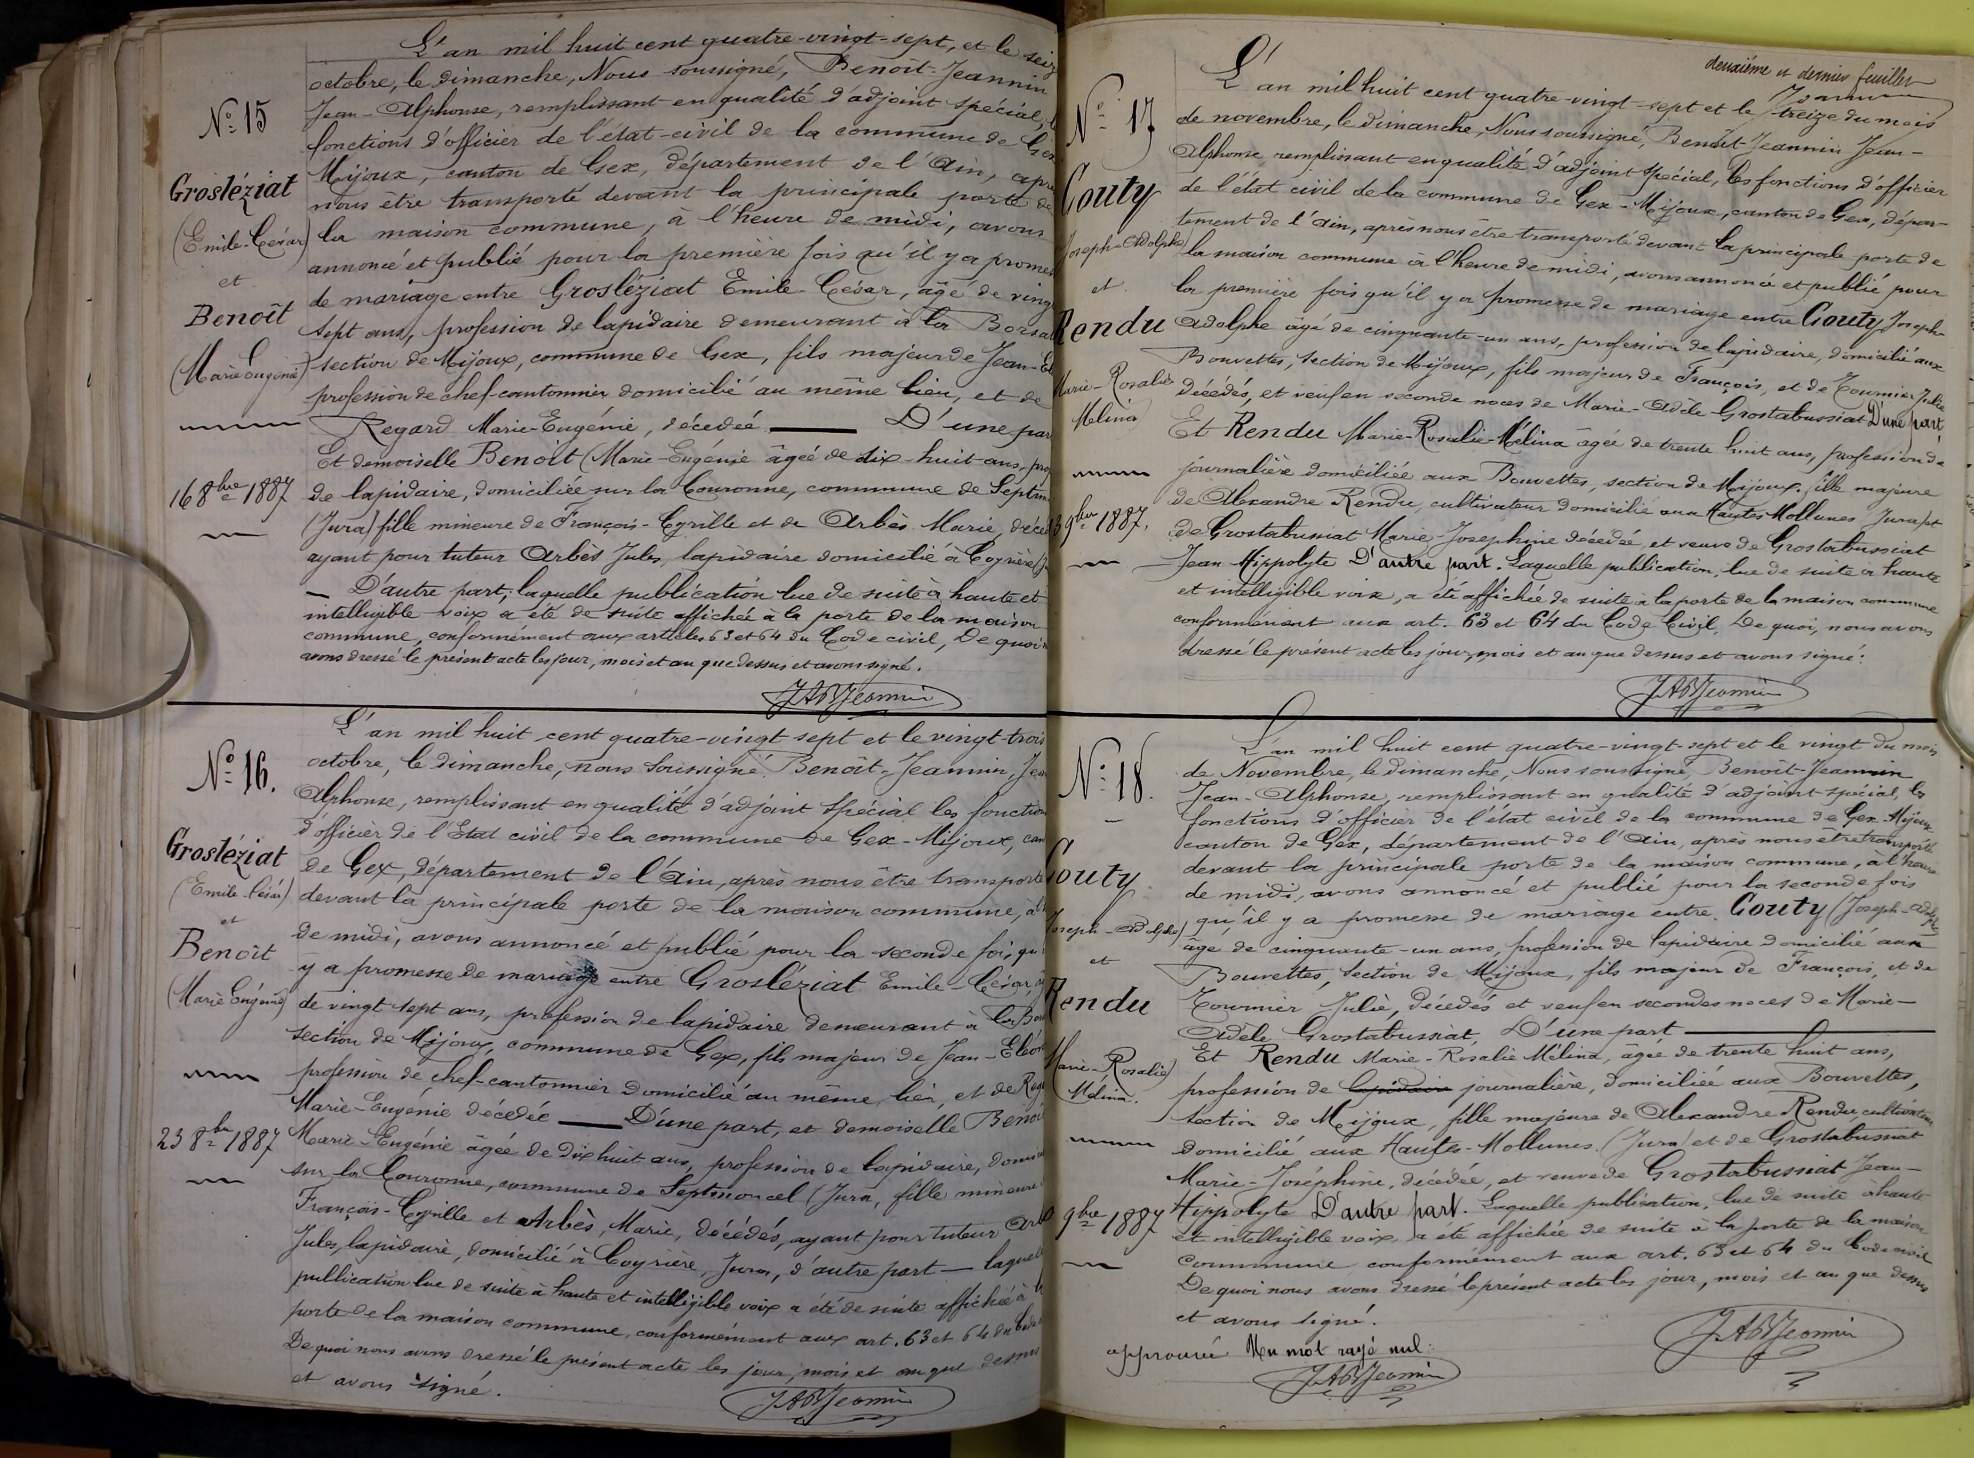 N° 15
Grosléziat
(Emile-César)
et
Benoît
(Marie Eugénie)
16 8bre 1887
L'an mil huit cent quatre-vingt-sept, et le seiz
octobre, le dimanche, Nous soussigné, Benoît-Jeannin
Jean-Alphonse, remplissant en qualité d'adjoint spécial, l
fonctions d'officier de l'état-civil de la commune de Gex
Mijoux, canton de Gex, département de l'Ain, aprè
nous être transporté devant la principale porte de
la maison commune, à l'heure de midi, avons
annoncé et publié pour la première fois qu'il y a promes
de mariage entre Grosléziat Emile-César, âgé de ving
sept ans, profession de lapidaire demeurant à la Borsa
section de Mijoux, commune de Gex, fils majeur de Jean-El
profession de chef-cantonnier domicilié au même lieu, et de
Regard Marie-Eugénie, décédée D'une par
Et demoiselle Benoît (Marie-Eugénie âgée de dix-huit ans, pro
de lapidaire, domiciliée sur la Couronne, commune de Septm
(Jura) fille mineure de François-Cyrille et de Arbès Marie, décé
ayant pour tuteur Arbès Jules, lapidaire domicilié à Coyrière (J
D'autre part; laquelle publication lue de suite à haute et
intelligible voix a été de suite affichée à la porte de la maison
commune, conformément aux articles 63 et 64 du Code civil, De quoi n
avons dressé le présent acte les jour, mois et an que dessus et avons signé.
JABJeannin
N° 16.
Grosléziat
(Emile-César)
et
Benoît
(Marie Eugénie)
23 8bre 1887
L'an mil huit cent quatre-vingt sept et le vingt-trois
octobre, le dimanche, nous soussigné Benoît-Jeannin, Jea
Alphonse, remplissant en qualité d'adjoint spécial les fonction
d'officier de l'Etat civil de la commune de Gex-Mijoux, can
de Gex, département de l'Ain, après nous être transporté
devant la principale porte de la maison commune, à l
de midi, avons annoncé et publié pour la seconde fois, qu'i
y a promesse de mariage entre Grosléziat Emile-César, â
de vingt-sept ans, profession de lapidaire demeurant à la Bor
section de Mijoux, commune de Gex, fils majeur de Jean-Eléon
profession de chef-cantonnier domicilié au même lieu, et de Reg
Marie-Eugénie décédée D'une part, et demoiselle Benoî
Marie-Eugénie âgée de dix huit ans, profession de lapidaire, domici
sur la Couronne, commune de Septmoncel (Jura, fille mineure
François-Cyrille et Arbès, Marie, décédés, ayant pour tuteur Arb
Jules, lapidaire, domicilié à Coyrière, Jura, d'autre part — laquel
publication lue de suite à haute et intelligible voix a été de suite affichée à l
porte de la maison commune, conformément aux art. 63 et 64 du Code
De quoi nous avons dressé le présent acte les jour, mois et an que dessus
et avons signé.
JABJeannin
deuxième et dernier feuillet
N° 17
Gouty
Joseph-Adolphe)
et
Rendu
Marie-Rosalie
Mélina
3 9bre 1887.
L'an mil huit cent quatre-vingt-sept et le treize du mois
de novembre, le dimanche, Nous soussigné, Benoît-Jeannin Jean-
Alphonse, remplissant en qualité d'adjoint spécial, les fonctions d'officier
de l'état civil de la commune de Gex-Mijoux, canton de Gex, dépar-
tement de l'Ain, après nous être transporté devant la principale porte de
la maison commune à l'heure de midi, avons annoncé et publié pour
la première fois qu'il y a promesse de mariage entre Gouty, Joseph-
Adolphe âgé de cinquante-un ans, profession de lapidaire, domicilié aux
Bouvettes, section de Mijoux, fils majeur de François, et de Tournier Julie
décédés, et veuf en seconde noces de Marie-Adèle Grostabussiat D'une part,
Et Rendu Marie-Rosalie-Mélina âgée de trente huit ans, profession de
journalière domiciliée aux Bouvettes, section de Mijoux. fille majeure
de Alexandre Rendu, cultivateur domicilié aux Hautes Mollunes Jura) et
de Grostabussiat Marie-Josephine décédée, et veuve de Grostabussiat
Jean Hippolyte D'autre part. Laquelle publication, lue de suite à haute
et intelligible voix, a été affichée de suite à la porte de la maison commune
conformément aux art. 63 et 64 du Code Civil, De quoi, nous avons
dressé le présent acte les jour, mois et an que dessus et avons signé:
JABJeannin
N° 18.
Gouty
Joseph-Adolphe)
et
Rendu
Marie-Rosalie)
Mélina.
0 9bre 1887
L'an mil huit cent quatre-vingt-sept et le vingt du mois
de Novembre, le dimanche, Nous soussigné, Benoît-Jeannin
Jean-Alphonse, remplissant en qualité d'adjoint-spécial, les
fonctions d'officier de l'état civil de la commune de Gex-Mijoux
canton de Gex, département de l'Ain, après nous être transporté
devant la principale porte de la maison commune, à l'heure
de midi, avons annoncé et publié pour la seconde fois
qu'il y a promesse de mariage entre. Gouty (Joseph-Adolphe
âgé de cinquante-un ans, profession de lapidaire domicilié aux
Bouvettes, section de Mijoux, fils majeur de François, et de
Tournier Julie, décédés et veuf en secondes noces de Marie-
Adèle Grostabussiat, D'une part
Et Rendu Marie-Rosalie Mélina, âgée de trente huit ans,
profession de lapidaire journalière, domiciliée aux Bouvettes,
section de Mijoux, fille majeure de Alexandre Rendu, cultivateur
domicilié aux Hautes-Mollunes. (Jura) et de Grostabussiat
Marie-Joséphine, décédée, et veuve de Grostabussiat Jean-
Hippolyte D'autre part. Laquelle publication, lue de suite à haute
et intelligible voix, a été affichée de suite à la porte de la maison
commune conformément aux art. 63 et 64 du Code civil
De quoi nous avons dressé le présent acte les jour, mois et an que dessus
et avons signé.
JABJeannin
approuvé Un mot rayé nul:
JABJeannin